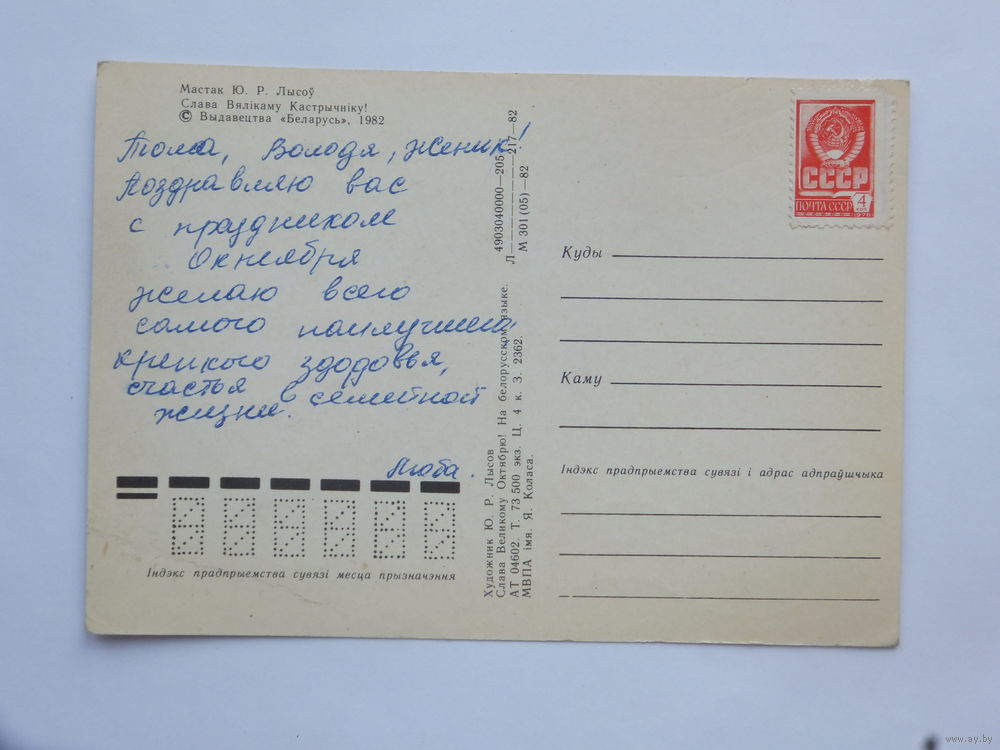 Мастак Ю. Р. Лысоў
Слава Вялікаму Кастрычніку!
© Выдавецтва «Беларусь», 1982
Володя, Женик!
Поздравляю вас
с праздником
Октября
желаю всего
самого наилучшего,
крепкого здоровья,
счастья в семейной
жизни.
Люба.
Індэкс прадпрыемства сувязі месца прызначэння
Художник Ю. Р. Лысов
Слава Великому Октябрю! На белорусском языке.
АТ 04602. Т. 73 500 экз. Ц. 4 к. З. 2362.
МВПА імя. Я. Коласа.
4903040000—205
Л—————217—82
М 301(05)—82
СССР
ПОЧТА СССР
4
КОП
1976
Куды
Каму
Індэкс прадпрыемства сувязі і адрас адпраўшчыка
www.ay.by